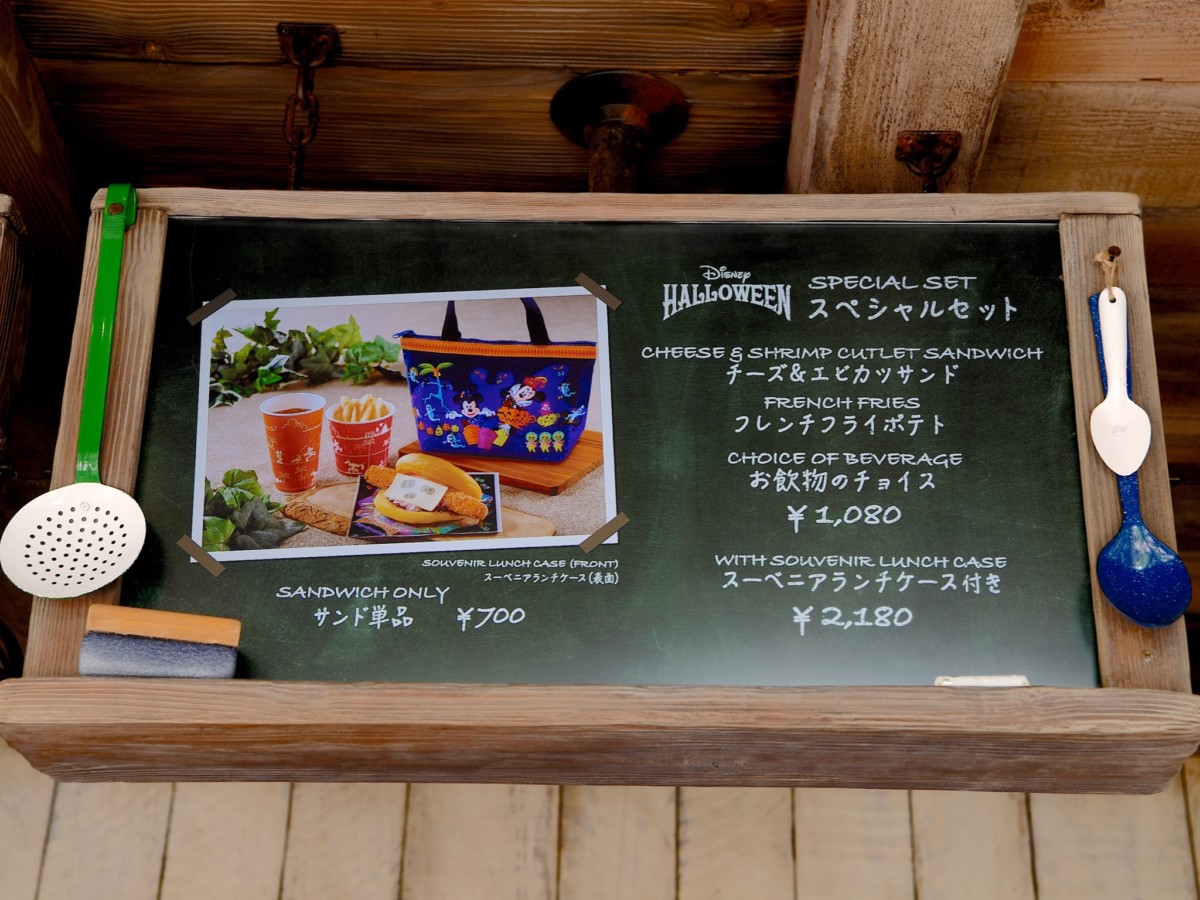 Disney
HALLOWEEN
SPECIAL SET
スペシャルセット
CHEESE & SHRIMP CUTLET SANDWICH
チーズ&エビカツサンド
FRENCH FRIES
フレンチフライポテト
CHOICE OF BEVERAGE
お飲物のチョイス
¥1,080
WITH SOUVENIR LUNCH CASE
スーベニアランチケース付き
¥2,180
SOUVENIR LUNCH CASE (FRONT)
スーベニアランチケース(表面)
SANDWICH ONLY
サンド単品 ¥700